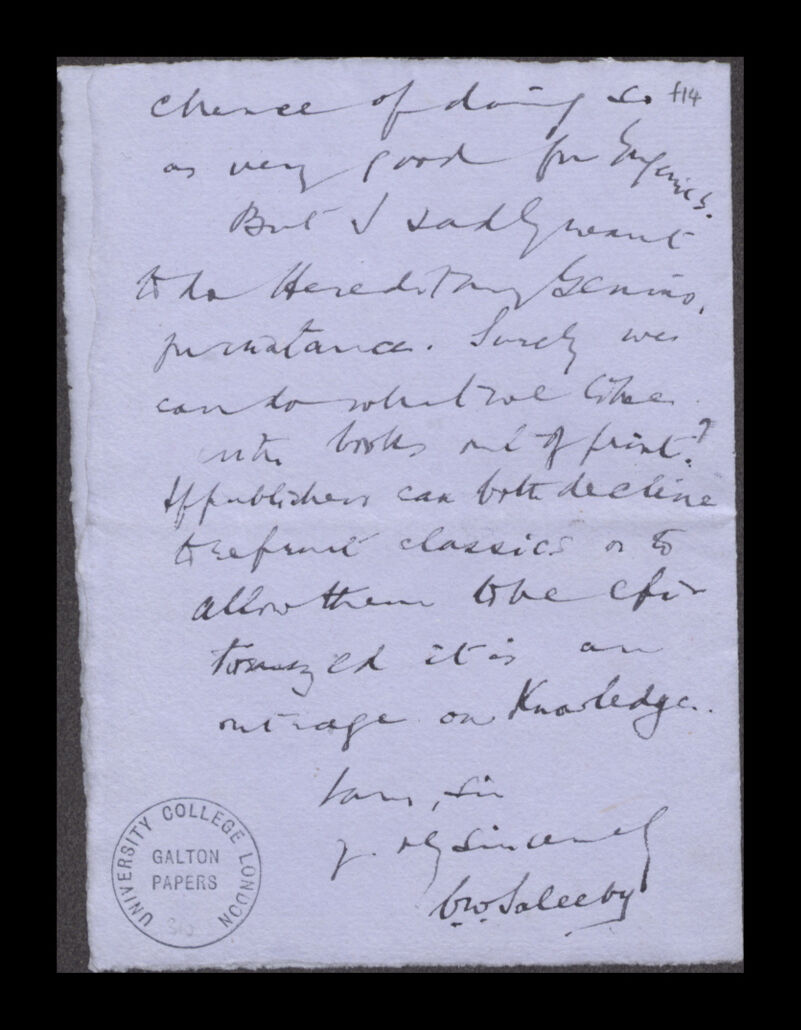 chance of doing so f14
as very good for Eugenics.
But I sadly want
to do Hereditary Genius,
for instance. Surely we
can do what we like
with books out of print?
If publishers can both decline
to reprint classics or to
allow them to be epi-
tomized it is an
outrage on Knowledge.
I am, Sir
y. sincerely
CW Saleeby
UNIVERSITY COLLEGE LONDON
GALTON
PAPERS